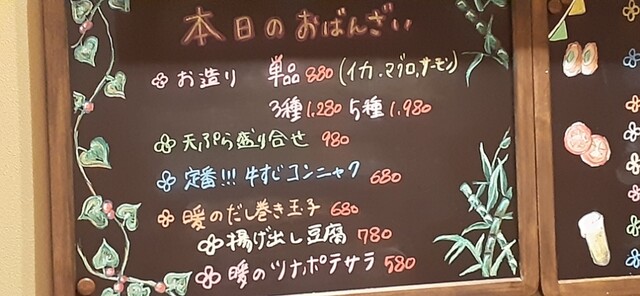 本日のおばんざい
お造り 単品 880 (イカ.マグロ.サーモン)
3種 1,280 5種 1,980
天ぷら盛り合せ 980
定番!!! 牛すじコンニャク 680
暖のだし巻き玉子 680
揚げ出し豆腐 780
暖のツナポテサラ 580